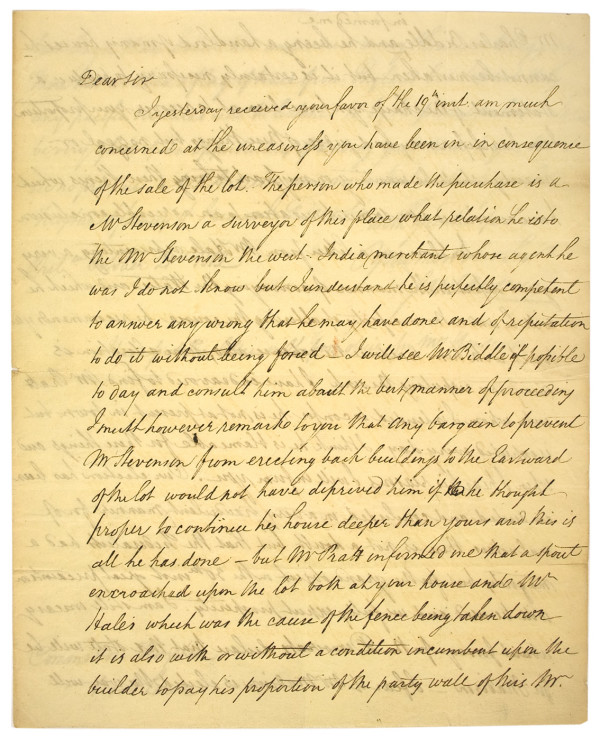 Dear Sir
I yesterday received your favor of the 19th inst am much
concerned at the uneasiness you have been in in consequence
of the sale of the lot. The person who made the purchase is a
Mr Stevenson a surveyor of this place what relation he is to
the Mr Stevenson the west-India merchant whose agent he
was I do not know but I understand he is perfectly competent
to answer any wrong that he may have done and of reputation
to do it without being forced – I will see Mr Biddle if possible
to day and consult him about the best manner of proceeding
I must however remark to you that any bargain to prevent
Mr Stevenson from erecting back buildings to the Eastward
of the lot would not have deprived him if he thought
proper to continue his house deeper than yours and this is
all he has done – but Mr Pratt informed me that a spout
encroached upon the lot both at your house and Mr
Hales which was the cause of the fence being taken down
it is also with or without a condition incumbent upon the
builder to pay his proportion of the party wall of this Mr.